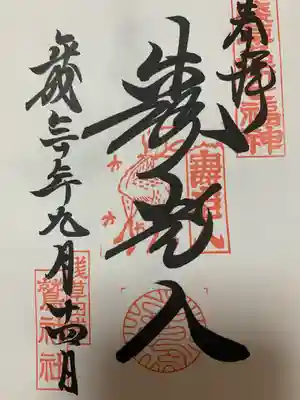 奉拝
壽老人
平成三十年九月十四日
浅草名所
七福神
壽老人
鷲神社